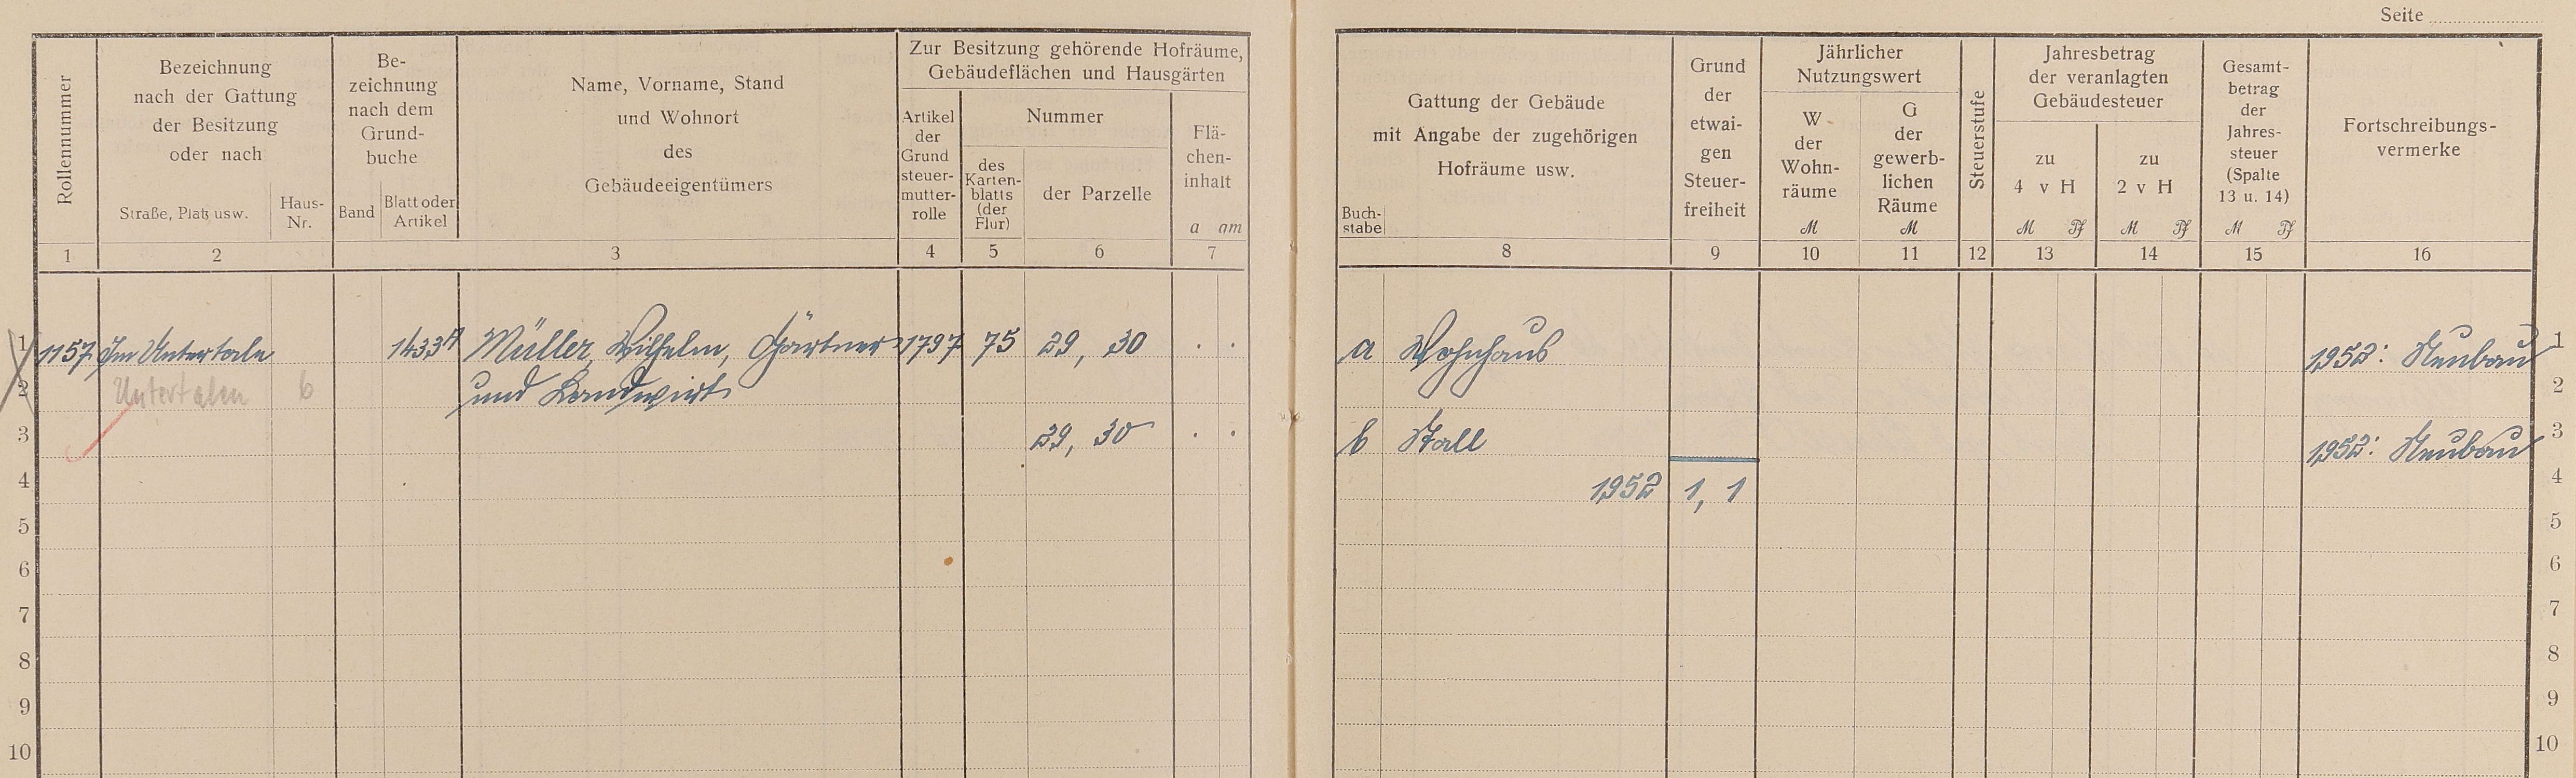 Seite
Rollennummer
Bezeichnung
nach der Gattung
der Besitzung
oder nach
Straße, Platz usw.
Haus-
Nr.
Be-
zeichnung
nach dem
Grund-
buche
Band
Blatt oder
Artikel
Name, Vorname, Stand
und Wohnort
des
Gebäudeeigentümers
Zur Besitzung gehörende Hofräume,
Gebäudeflächen und Hausgärten
Artikel
der
Grund
steuer-
mutter-
rolle
Nummer
des
Karten-
blatts
(der
Flur)
der Parzelle
Flä-
chen-
inhalt
a qm
1 2 3 4 5 6 7
Gattung der Gebäude
mit Angabe der zugehörigen
Hofräume usw.
Buch-
stabe
Grund
der
etwai-
gen
Steuer-
freiheit
Jährlicher
Nutzungswert
W
der
Wohn-
räume
M
G
der
gewerb-
lichen
Räume
M
Steuerstufe
Jahresbetrag
der veranlagten
Gebäudesteuer
zu
4 v H
M Pf
zu
2 v H
M Pf
Gesamt-
betrag
der
Jahres-
steuer
(Spalte
13 u. 14)
M Pf
Fortschreibungs-
vermerke
8 9 10 11 12 13 14 15 16
1 1157 Im Untertale 1433A Müller, Wilhelm, Gärtner 1797 75 29, 30 . .
2 Untertalen 6 und Landwirt
3 29, 30 . .
4
5
6
7
8
9
10
a Wohnhaus 1952: Neubau 1
2
b Stall 1952: Neubau 3
1952 1, 1 4
5
6
7
8
9
10